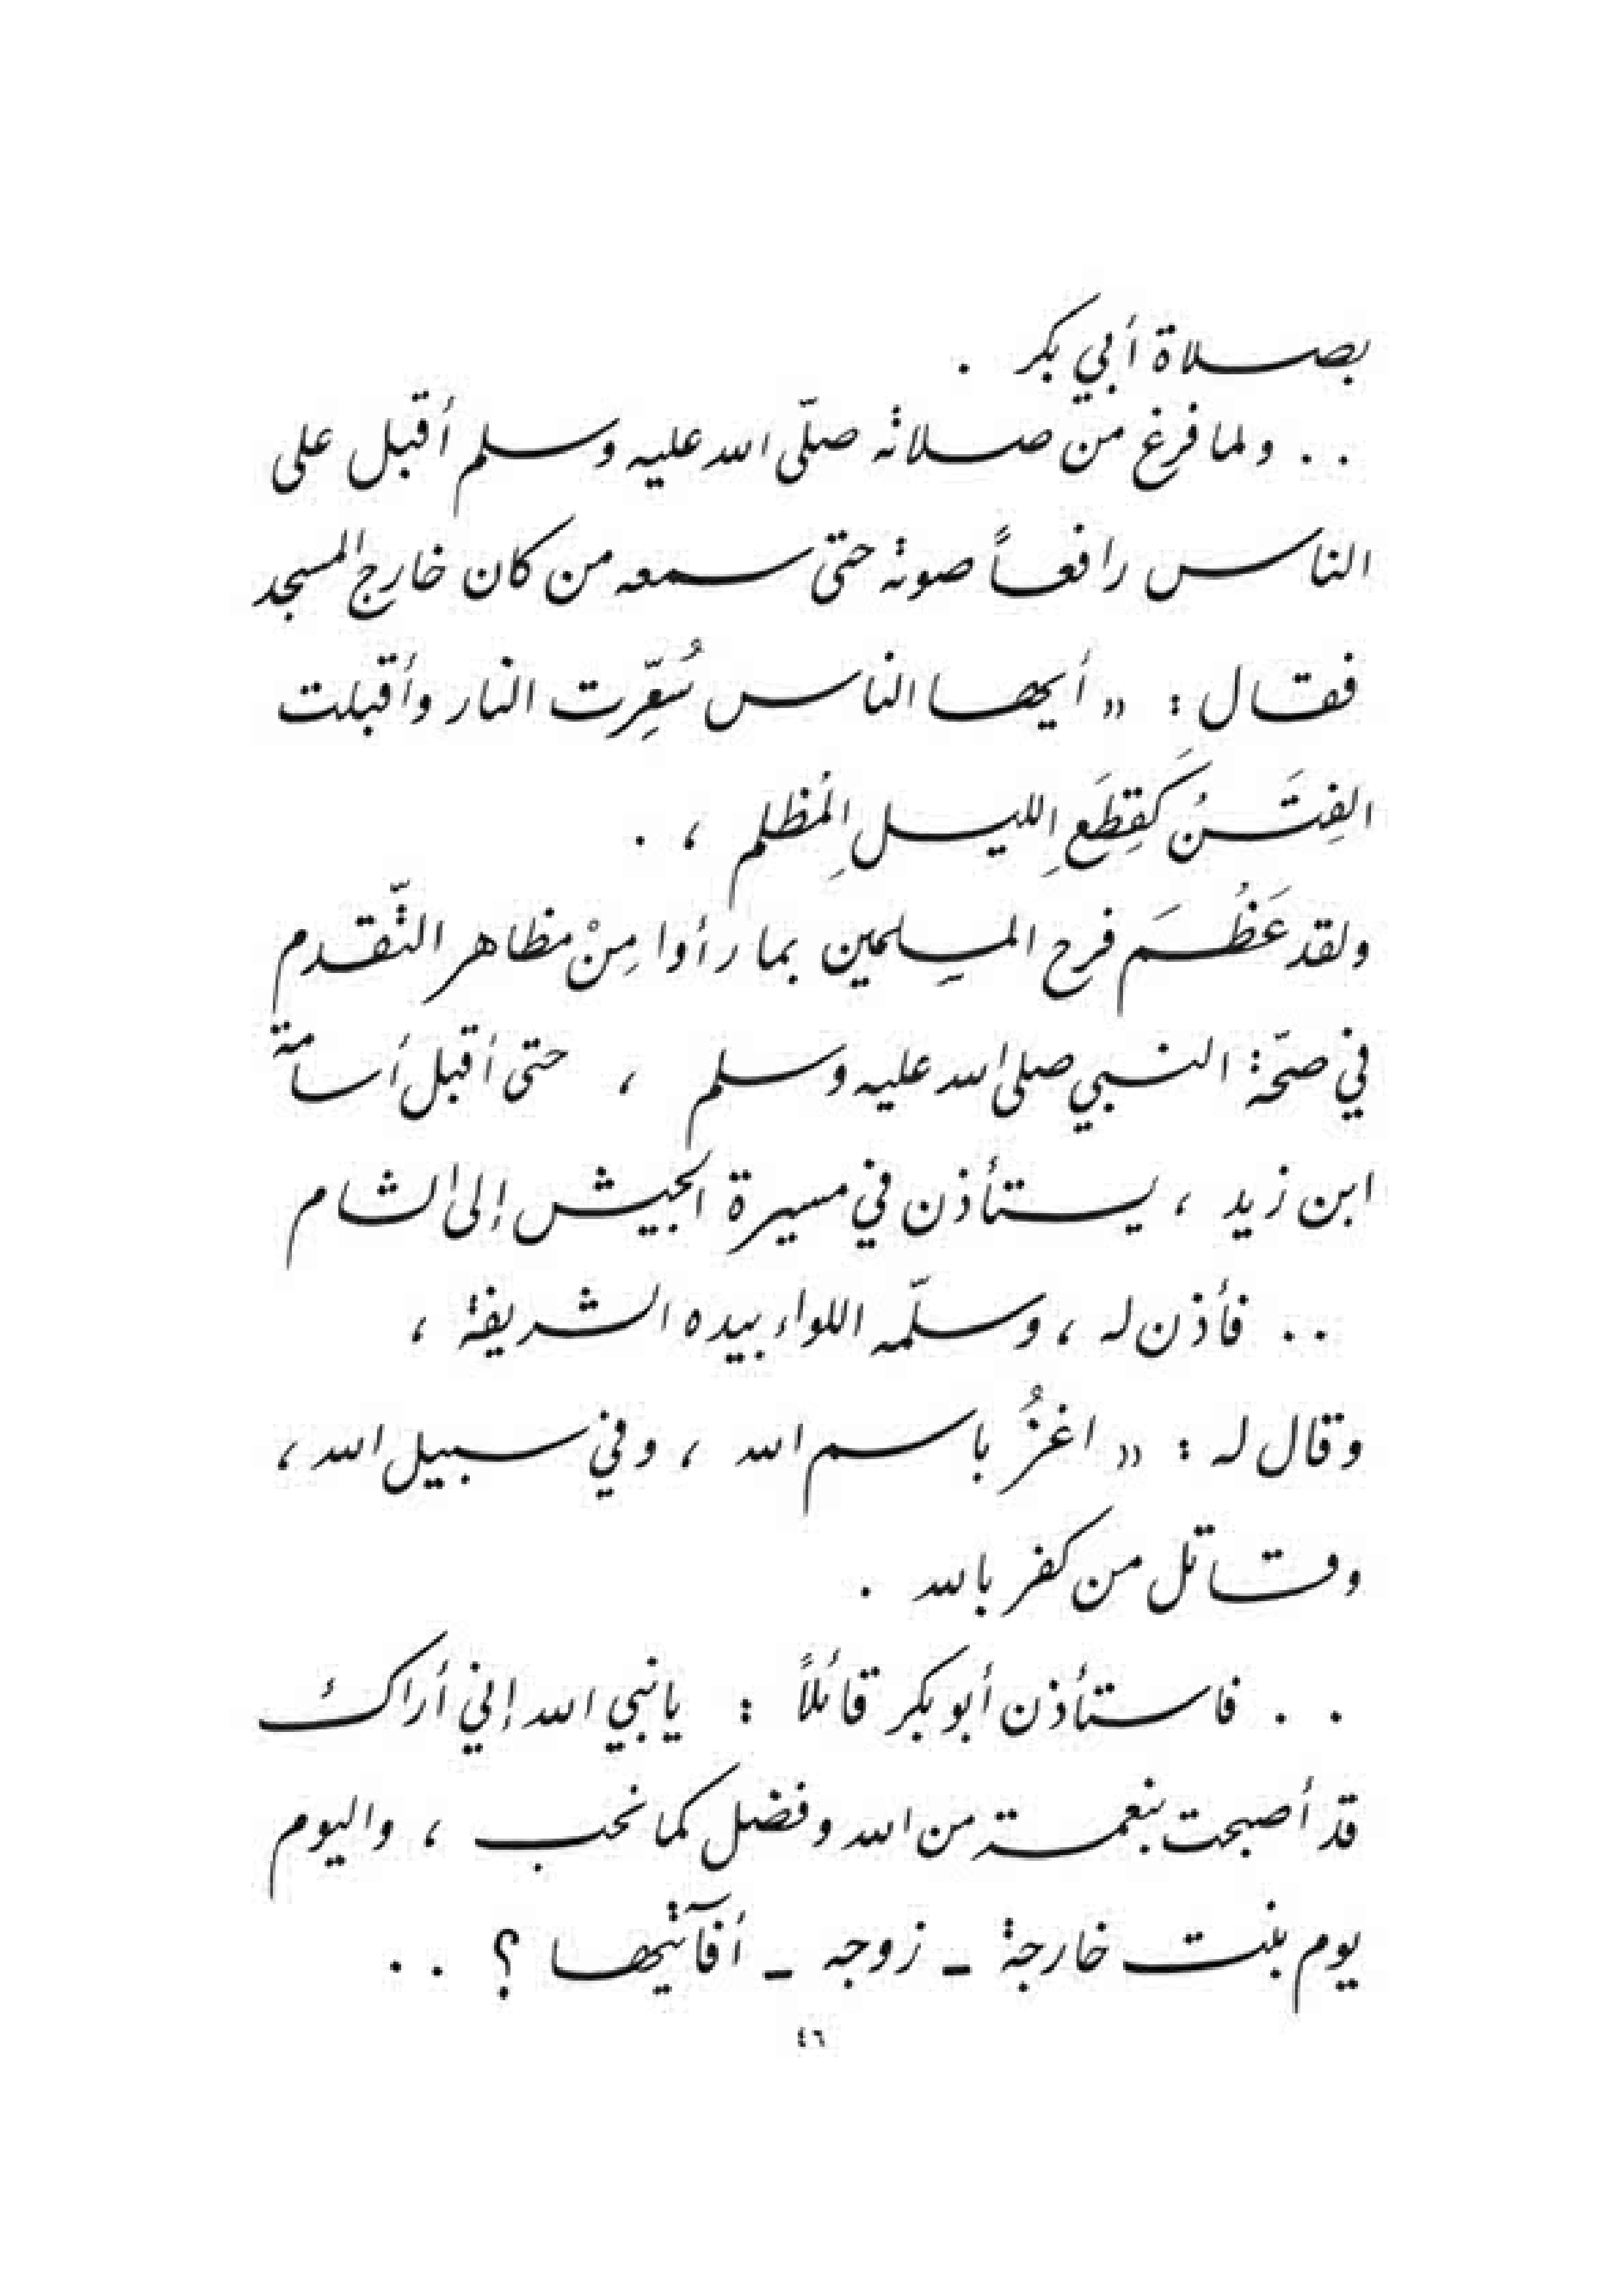 بصلاة أبي بكر .
. . ولما فرغ من صلاته صلّى الله عليه وسلم أقبل على
الناس رافعاً صوته حتى سمعه من كان خارج المسجد
فقال : « أيها الناس سُعِّرت النار وأقبلت
الفِتَنُ كَقِطَعِ الليلِ المُظلم ، .
ولقد عَظُمَ فرح المسلمين بما رأوا مِنْ مظاهر التّقدم
في صحّة النبي صلى الله عليه وسلم ، حتى أقبل أسامة
ابن زيد ، يستأذن في مسيرة الجيش إلى الشام
. . فأذن له ، وسلّمه اللواء بيده الشريفة ،
وقال له : « اغزُ باسم الله ، وفي سبيل الله ،
وقاتل من كفر بالله .
. . فاستأذن أبو بكر قائلاً : يا نبي الله إني أراك
قد أصبحت بنعمة من الله وفضل كما نحب ، واليوم
يوم بنت خارجة - زوجه - أفآتيها ؟ . .
٤٦